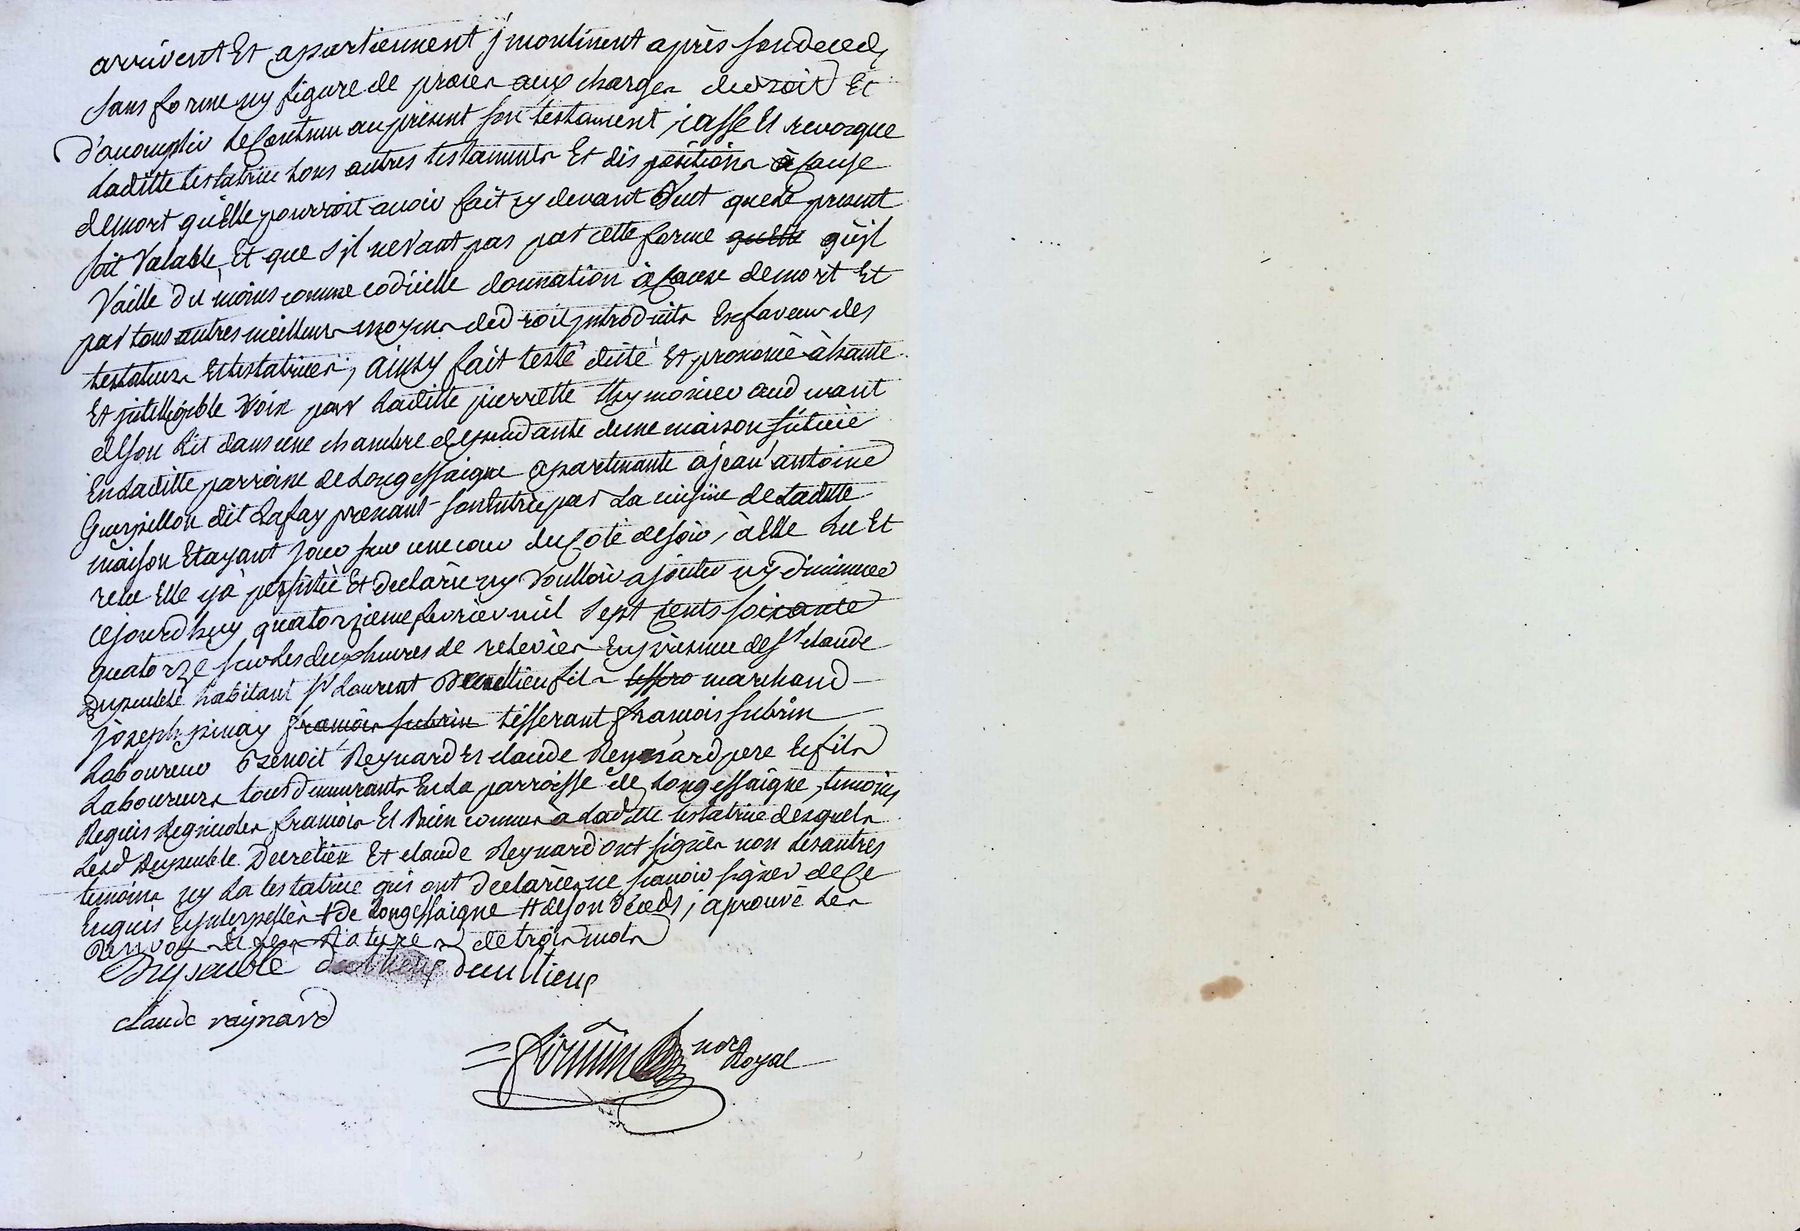 arrivent Et apartiennent jmontinent après son deced,
sans forme ny figure de procer aux charger de droit Et
d'acomplir le Contenu au present son testament, casse Et revocque
Laditte testatrice tous autres testamentr Et dispositionr à Cause
de mort qu'Elle pourroit avoir fait cy devant Veut que Le present
soit Valable, Et que s'il ne Vaut pas par cette forme quelle qu'il
Vaille du moins comme codicille donnation à Cause de mort Et
par tous autres meilleurr moyenr de droit jntroduitr En faveur des
testateurr Et testatricer, ainsy fait testé dicté Et prononcé à haute
Et jntelligible Voix par Laditte pierrette thymonier au d'uant
de son Lit dans une chambre dependante d'une maison située
En Laditte parroisse de Longessaigne apartenante à jean antoine
Guerpillon dit Lafay prenant son Entrée par La cuisine de Laditte
maison Et ayant jour sur une cour du Coté de soir, à Elle Lu Et
relu Elle y à persisté Et declaré ny Voulloir ajouter ny diminuer
cejourd'huy quatorzieme fevrier mil sept cents soixante
quatorze sur Les deux heures de relevéer En presence de Sr claude
Dupeublé habitant Sr Laurent Decultieu fila marchand
joseph pinay francoir subrin tisserant francois subrin
Laboureur Benoit Reynard Et claude Reynard pere Et filr
Laboureurr tous demeurantr En La parroisse de Longessaigne, temoins
Requis Regnicoler francoir Et Bien connur à Laditte testatrice desquelr
Lesd Dupeuble Decultieu Et claude Reynard ont signér non Les autres
temoinr ny La testatrice qui ont declaré ne scavoir signer de Ce
Enquis Et jnterpellér # de Longessaigne # de son deceds, aprouvé Ler
Renvoy Et ler Rature de trois motr
Dupeublé decultieux decultieux
claude raynard
firmin nore Royal